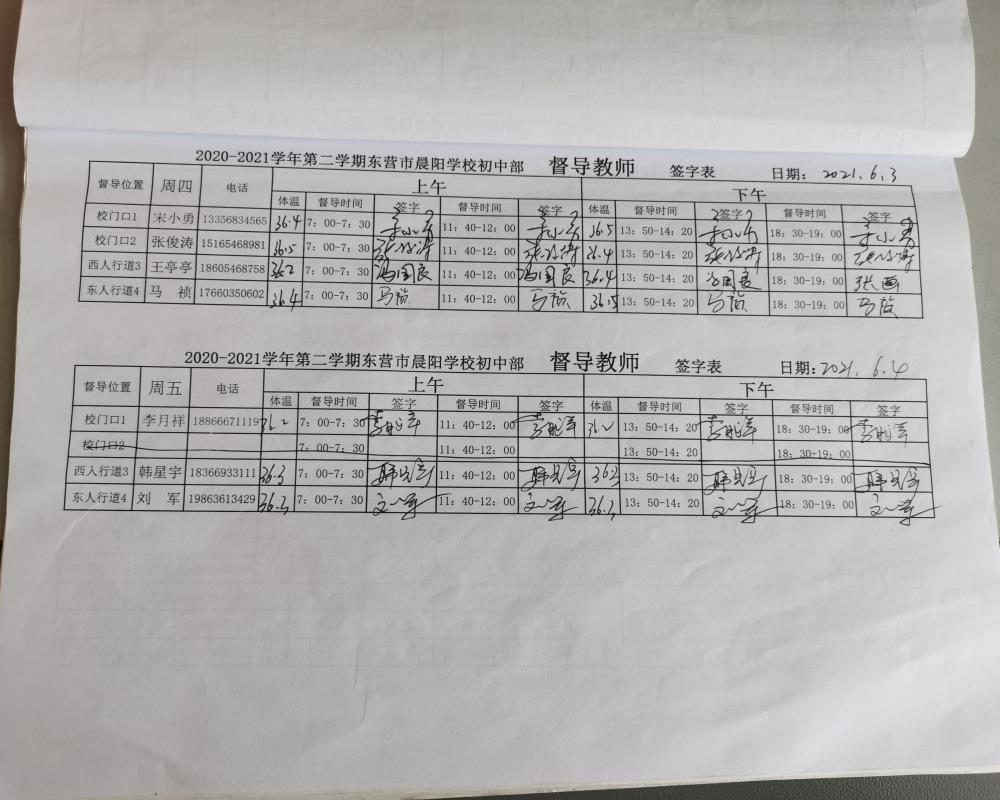 2020-2021学年第二学期东营市晨阳学校初中部 督导教师 签字表 日期: 2021.6.3
督导位置 周四 电话 上午 下午
体温 督导时间 签字 督导时间 签字 体温 督导时间 签字 督导时间 签字
校门口1 宋小勇 13356834565 36.4 7: 00-7: 30 宋小勇 11: 40-12: 00 宋小勇 36.5 13: 50-14: 20 宋小勇 18: 30-19: 00 宋小勇
校门口2 张俊涛 15165468981 36.5 7: 00-7: 30 张俊涛 11: 40-12: 00 张俊涛 36.4 13: 50-14: 20 张俊涛 18: 30-19: 00 张俊涛
西人行道3 王亭亭 18605468758 36.2 7: 00-7: 30 冯国良 11: 40-12: 00 冯国良 36.4 13: 50-14: 20 冯国良 18: 30-19: 00 张画
东人行道4 马 祯 17660350602 36.4 7: 00-7: 30 马祯 11: 40-12: 00 马祯 36.5 13: 50-14: 20 马祯 18: 30-19: 00 马祯
2020-2021学年第二学期东营市晨阳学校初中部 督导教师 签字表 日期: 2021. 6.4
督导位置 周五 电话 上午 下午
体温 督导时间 签字 督导时间 签字 体温 督导时间 签字 督导时间 签字
校门口1 李月祥 18866671119 36.2 7: 00-7: 30 李月祥 11: 40-12: 00 李月祥 36.2 13: 50-14: 20 李月祥 18: 30-19: 00 李月祥
校门口2 7: 00-7: 30 11: 40-12: 00 13: 50-14: 20 18: 30-19: 00
西人行道3 韩星宇 18366933111 36.3 7: 00-7: 30 韩星宇 11: 40-12: 00 韩星宇 36.3 13: 50-14: 20 韩星宇 18: 30-19: 00 韩星宇
东人行道4 刘 军 19863613429 36.3 7: 00-7: 30 刘军 11: 40-12: 00 刘军 36.3 13: 50-14: 20 刘军 18: 30-19: 00 刘军